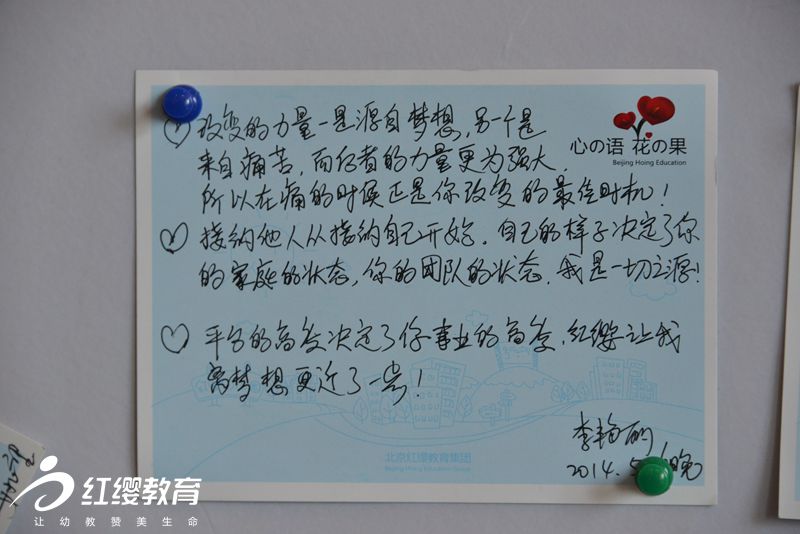 心の语 花の果
Beijing Hoing Education
改变的力量一是源自梦想,另一个是
来自痛苦,而后者的力量更为强大,
所以在痛的时候正是你改变的最佳时机!
接纳他人从接纳自己开始.自己的样子决定了你
的家庭的状态,你的团队的状态.我是一切之源!
平台的高度决定了你事业的高度.红缨让我
离梦想更近了一步!
李艳丽
2014.5 晚
北京红缨教育集团
Beijing Hoing Education Group
红缨教育
让幼教赞美生命